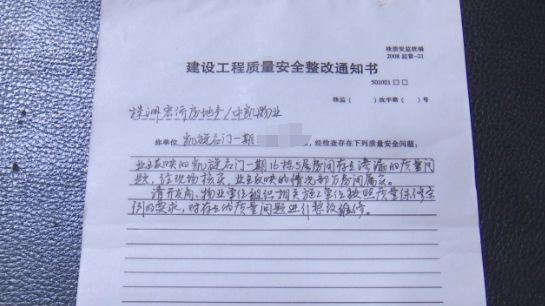 株质安监统编
2008 监督-21
建设工程质量安全整改通知书
501001□□
株监( )改字第( )号
株洲 房地产/中凯物业
你单位 凯旋名门一期 ,经检查存在下列质量安全问题:
业主反映的凯旋名门一期16栋5层房间存在渗漏的质量问
题,经现场核实,业主反映的情况部分房间属实。
请开发商、物业单位组织相关施工单位按照质量保修条
例的要求,对存在的质量问题进行整改维修。